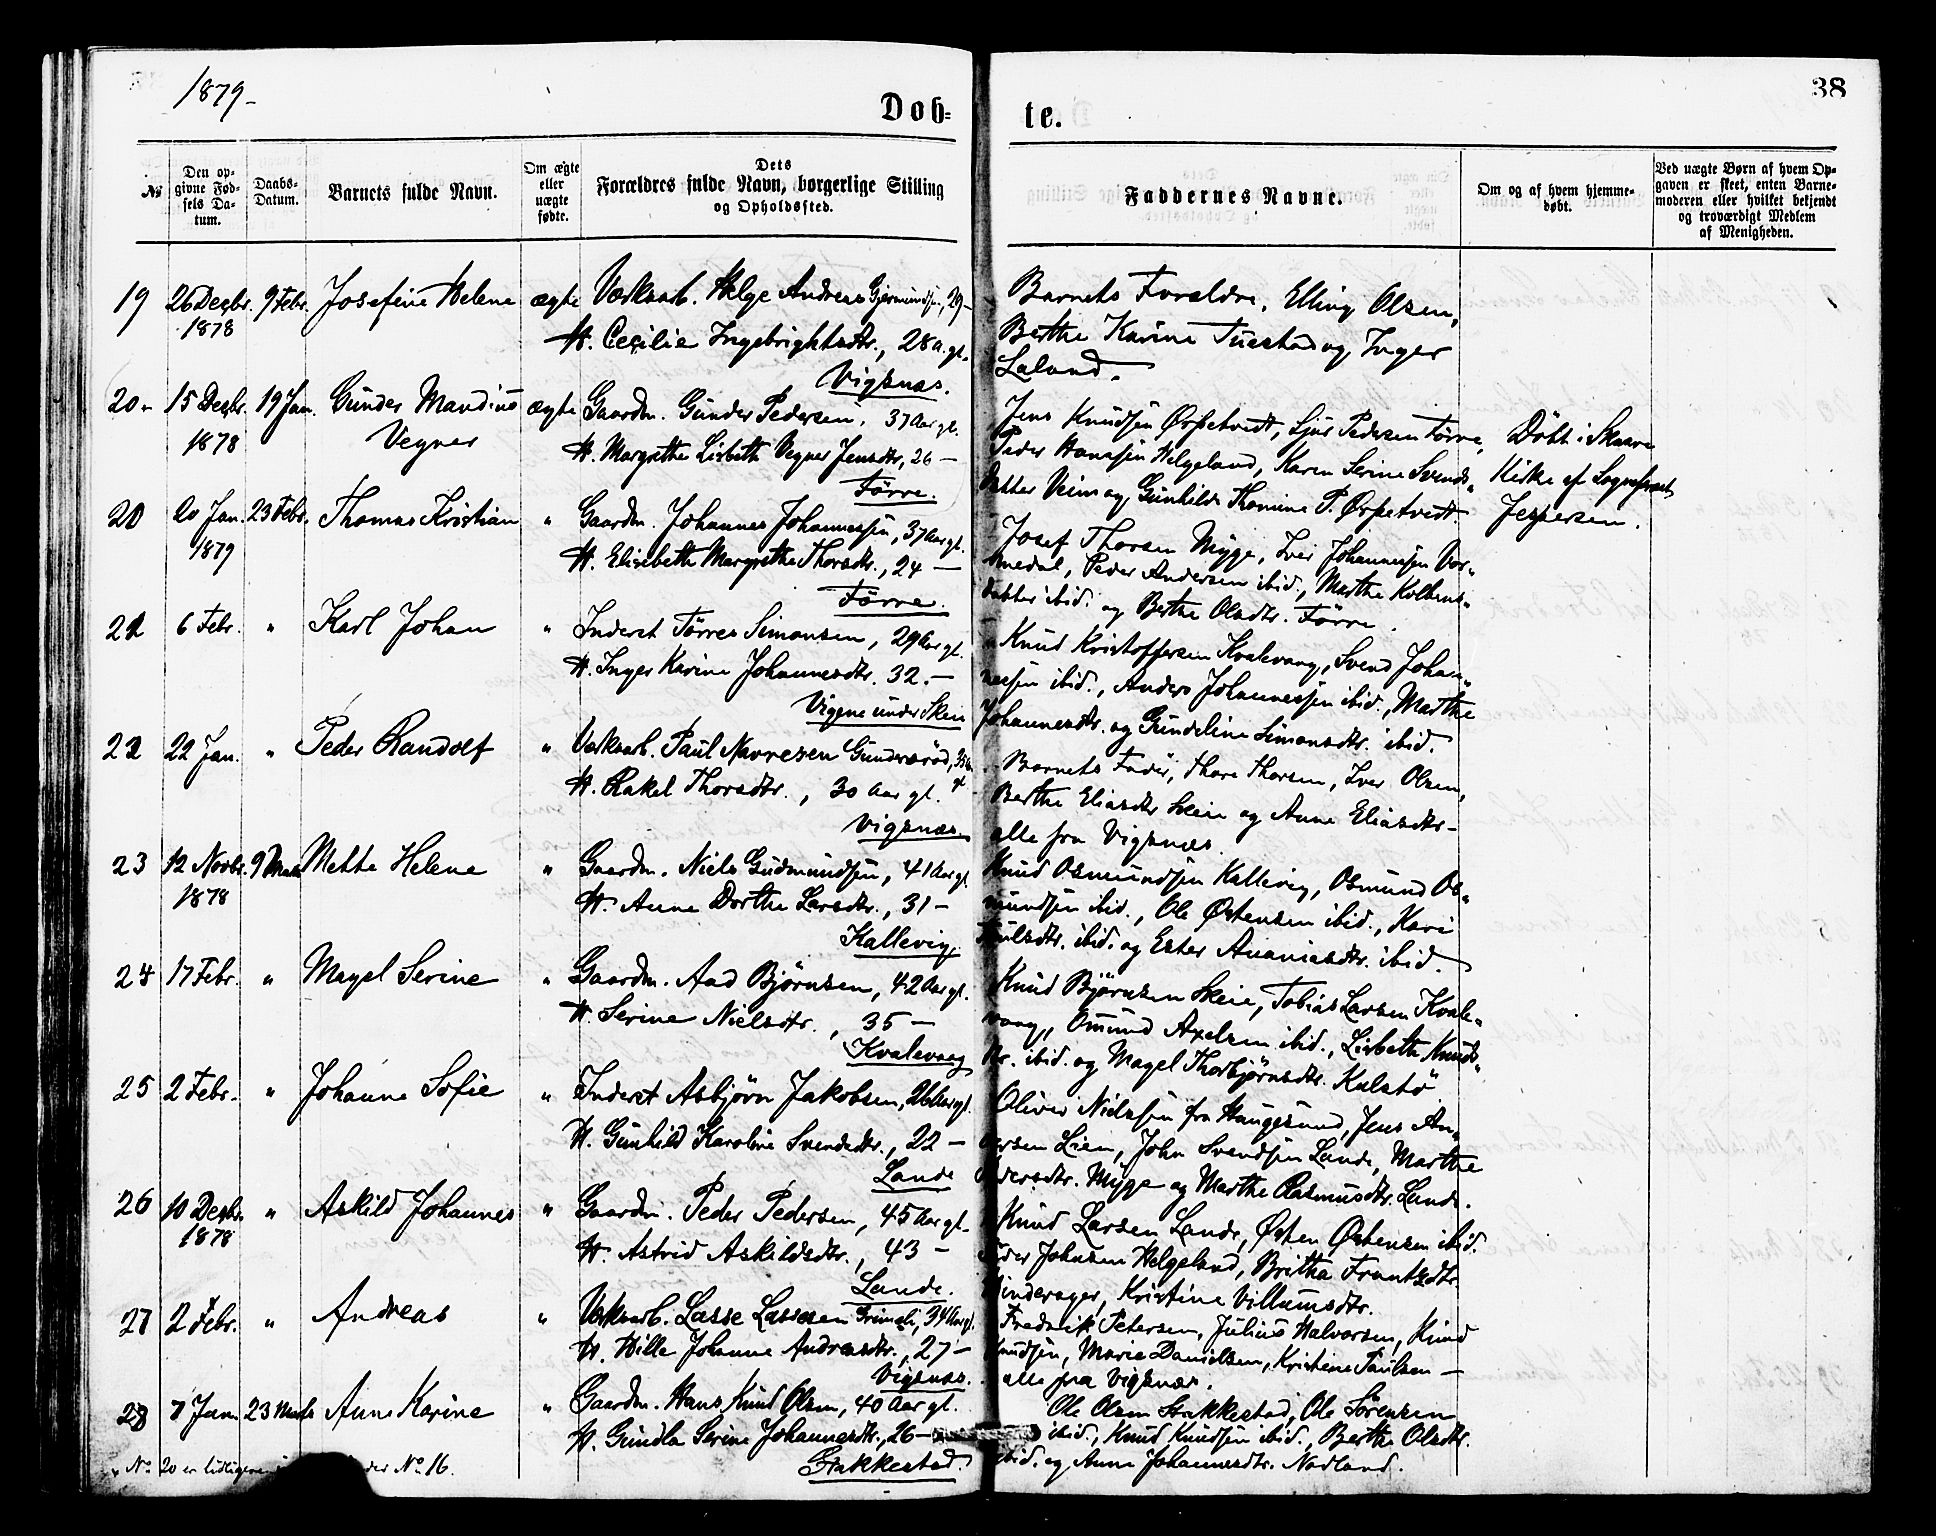 1879-
Døb=
te.
38
№
Den op-
givne Fød-
sels Da-
tum.
Daabs-
Datum.
Barnets fulde Navn.
Om ægte
eller
uægte
fødte.
Dets
Forældres fulde Navn, borgerlige Stilling
og Opholdssted.
Faddernes Navne.
Om og af hvem hjemme-
døbt.
Ved uægte Børn af hvem Op-
gaven er skeet, enten Barne-
moderen eller hvilket bekjendt
og troværdigt Medlem
af Menigheden.
19 26 Dezbr. 1878 9 Febr. Josefine Helene ægte Værksarb. Helge Andreas Gjermundsen, 29-
H. Cecilie Ingebrightsdtr., 28 a. gl.
Vigsnæs.
Barnets Forældre, Elling Olsen,
Berthe Karine Tuestad og Inger
Laland.
20 15 Dezbr. 1878 19 Jan. Gunder Mandius Vegner ægte Gaardm. Gunder Pedersen, 37 Aar gl.
H. Margrethe Lisbeth Vegner Jensdtr., 26 -
Førre.
Jens Knudsen Ørpetvedt, Sjur Pedersen Førre,
Peder Hansen Helgeland, Karen Serine Svends-
datter Veim og Gunhilde Thomine P. Ørpetvedt.
Döbt i Skaare
Kirke af Sognepræst
Jespersen.
20 20 Jan. 1879 23 Febr. Thomas Kristian " Gaardm. Johannes Johannessen, 37 Aar gl.
H. Elisebeth Margrethe Thorsdtr., 24 -
Førre.
Josef Thorsen Myge, Iver Johannessen Vor-
medal, Peder Andersen ibid., Marthe Kolbens-
datter ibid. og Berthe Olsdtr. Førre.
21 6 Febr. " Karl Johan " Inderst Tørres Simonsen, 29 Aar gl.
H. Inger Karine Johannesdtr. 32. -
Vigene under Skeie
Knud Kristoffersen Kvalevaag, Svend Johan-
nessen ibid., Anders Johannessen ibid., Marthe
Johannesdtr. og Gundeline Simonsdtr. ibid.
22 22 Jan. " Peder Randolf " Værksarb. Paul Navresen Gundersrød,
H. Rakel Thorsdtr., 30 Aar gl.
Vigsnæs.
Barnets Fader, Thore Thorsen, Iver Olsen,
Berthe Eliasdtr Skeie og Anne Eliasdtr-
alle fra Vigsnæs.
23 12 Novbr. 1878 9 Marts Mette Helene " Gaardm. Niels Gudmundsen, 41 Aar gl.
H. Anne Dorthe Larsdtr., 31 -
Kallevig.
Knud Osmundsen Kallevig, Osmund Os-
mundsen ibid., Ole Østensen ibid., Kari
Paulsdtr. ibid. og Ester Ananiasdtr. ibid.
24 17 Febr. " Magel Serine " Gaardm. Aad Bjørnsen, 42 Aar gl.
H. Serine Nielsdtr., 35 -
Kvalevaag
Knud Bjørnsen Skeie, Tobias Larsen Kvale-
vaag, Omund Axelsen ibid., Lisbeth Knuds-
dtr. ibid. og Magel Thorbjørnsdtr. Kalstö
25 2 Febr. " Johanne Sofie " Inderst Asbjørn Jakobsen, 26 Aar gl.
H. Gunhild Karoline Svendsdtr., 22 -
Lande
Oliver Nielsen fra Haugesund, Jens An-
dersen Lien, John Svendsen Lande, Marthe
Pedersdtr. Myge og Marthe Rasmusdtr. Lande.
26 10 Dezbr. 1878 " Askild Johannes " Gaardm. Peder Pedersen, 45 Aar gl.
H. Astrid Askildsdtr., 43 -
Lande.
Knud Larsen Lande, Østen Østensen ibid.
Peder Johnsen Helgeland, Britha Frantzdtr.
Vinderager, Kristine Villumsdtr.
27 2 Febr. " Andreas " Værksarb. Lasse Lassesen Grimeli, 34 Aar gl.
H. Hille Johanne Andreasdtr., 27 -
Vigsnæs.
Fredrik Petersen, Julius Halvorsen, Knud
Knudsen, Marie Danielsen, Kristine Paulsen -
alle fra Vigsnæs.
28 7 Jan. 23 Marts Anne Karine " Gaardm. Hans Knud Olsen, 40 Aar gl.
H. Gundla Serine Johannesdtr., 26 -
Stakkestad.
Ole Olsen Stakkestad, Ole Sörensen
ibid., Knud Knudsen ibid., Berthe Olsdtr.
ibid. og Anne Johannesdtr. Nodland.
No 20 er tidligere No. 16.